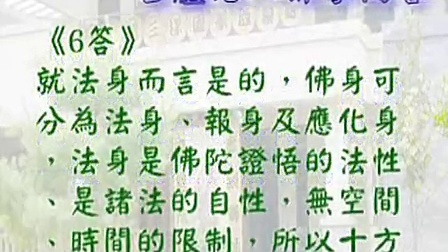 《6答》
就法身而言是的，佛身可
分為法身、報身及應化身
，法身是佛陀證悟的法性
、是諸法的自性，無空間
、時間的限制，所以十方